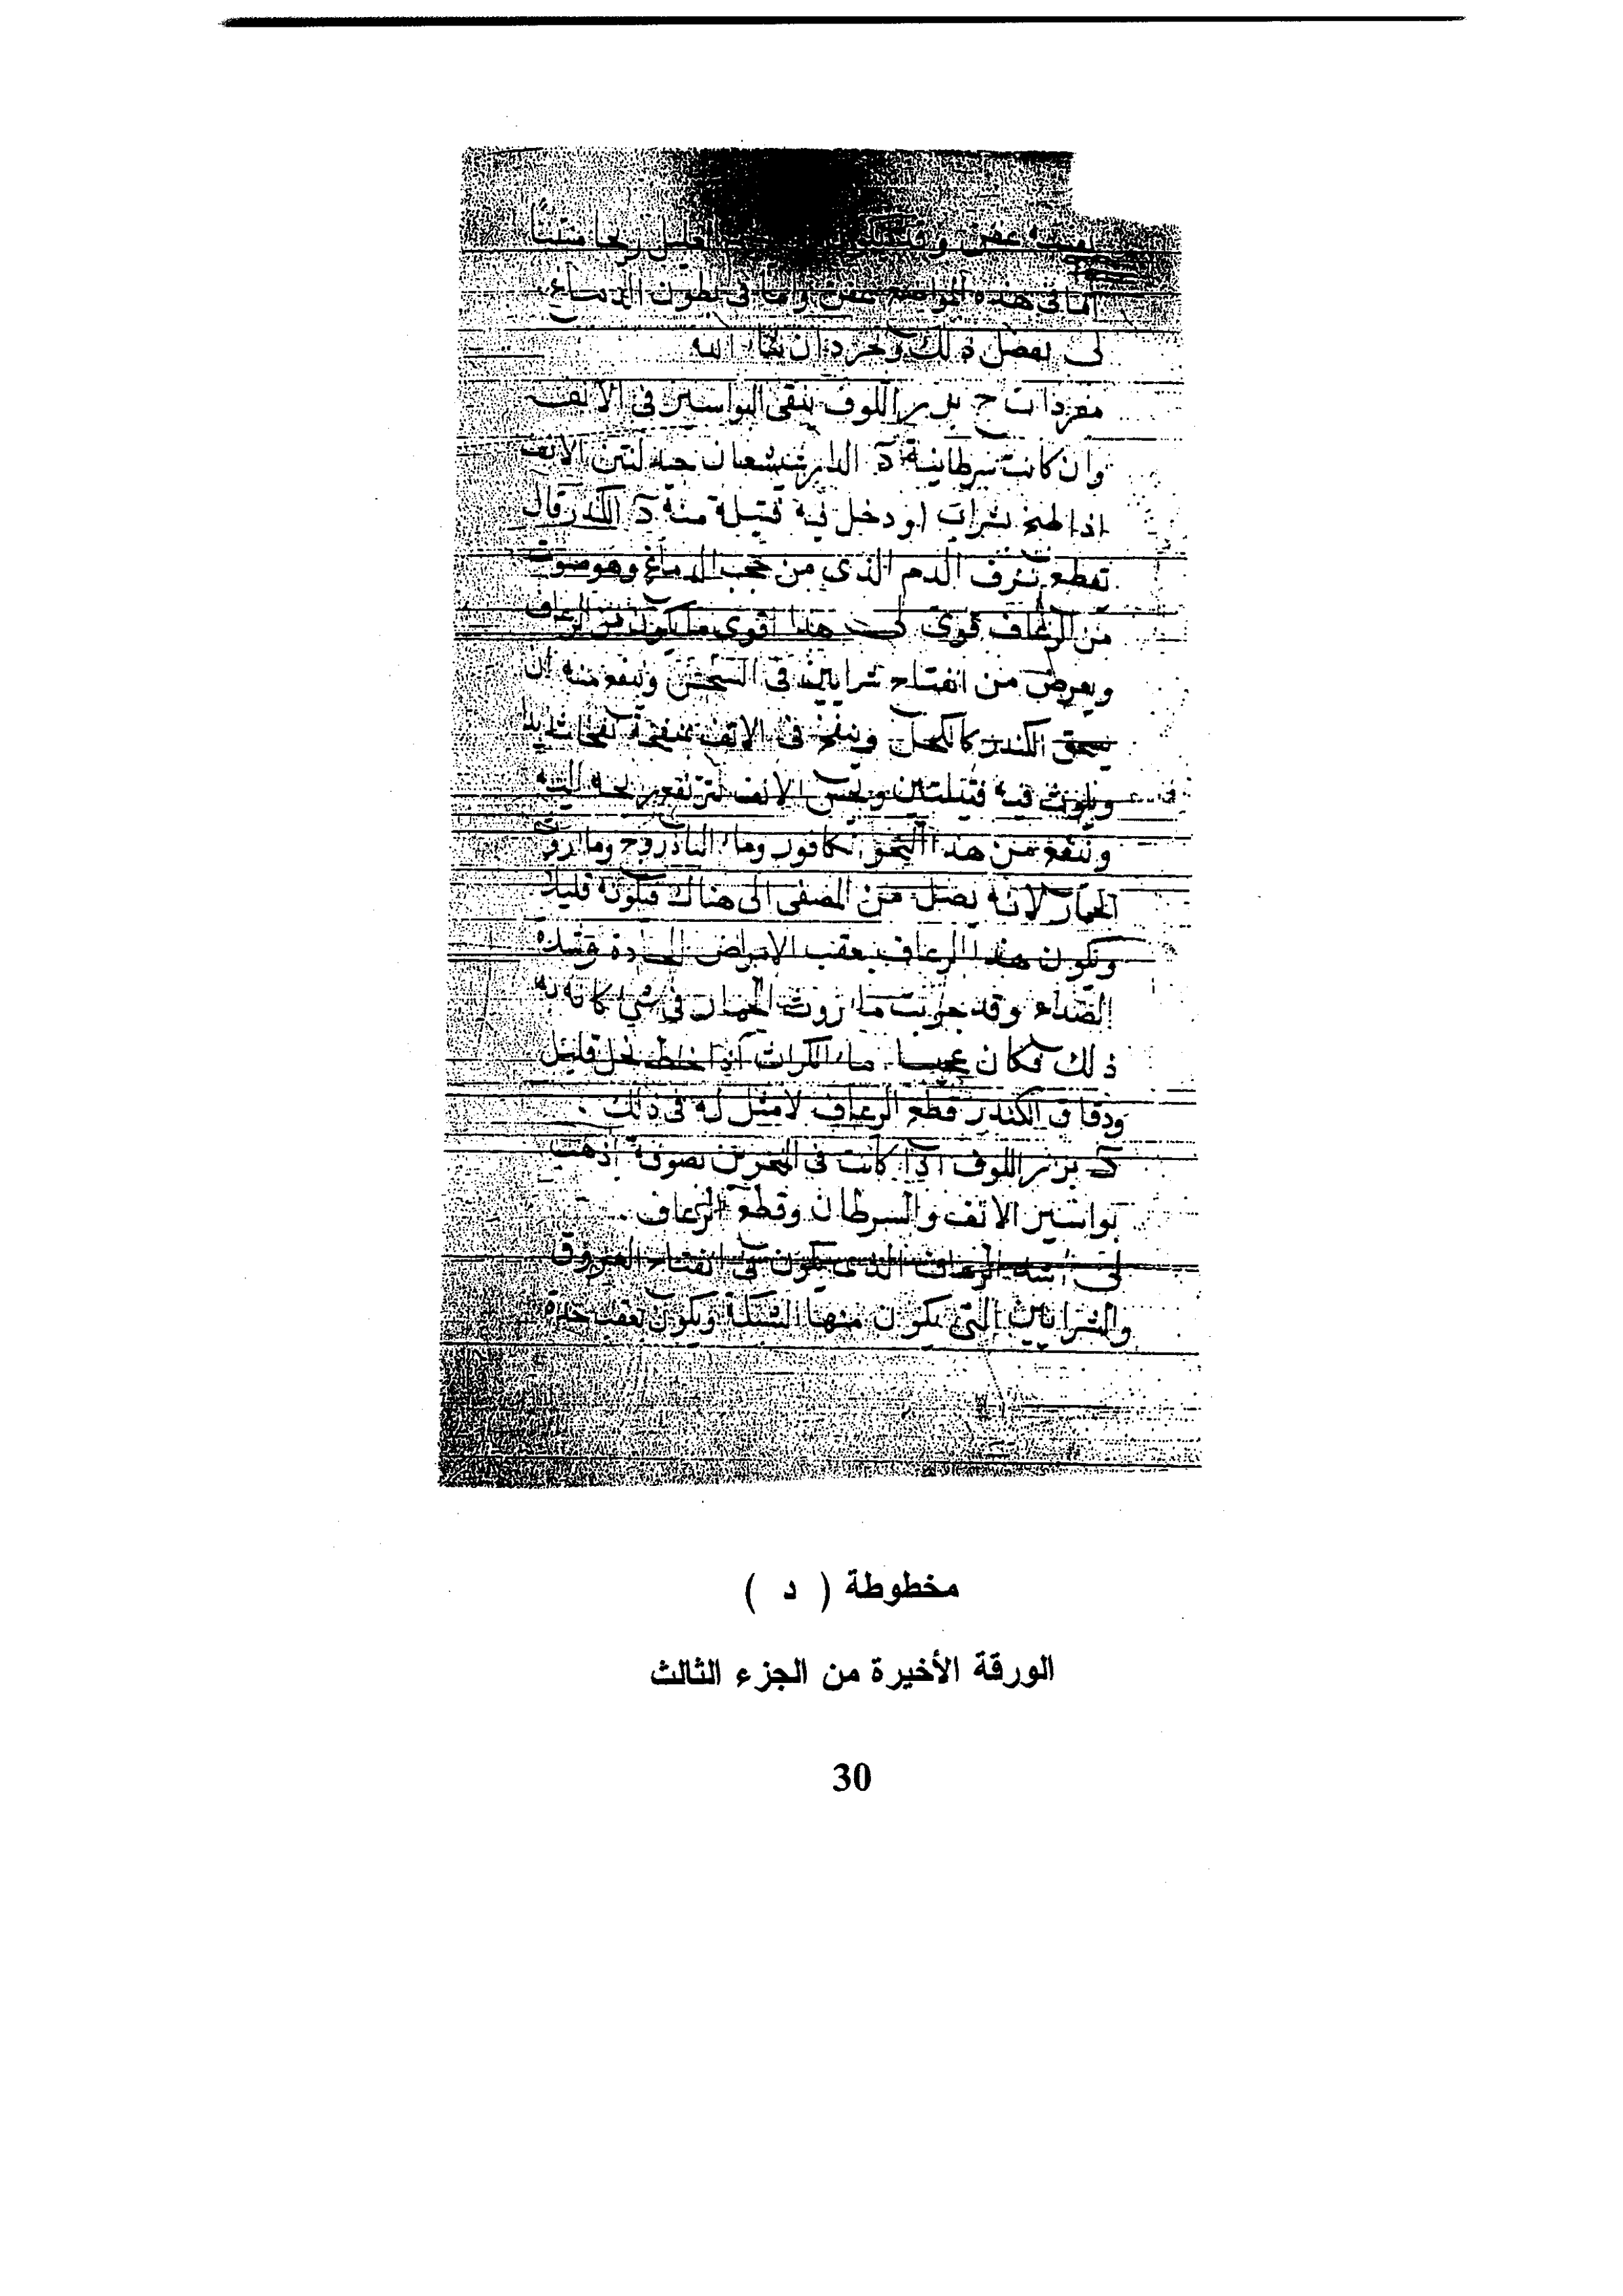 عفن ريحا منتنا
اما في هذه المواضع عفن واما في بطون الدماغ
لى يفصل ذلك ويحرر ان شاء الله
مفردات ج بزر اللوف ينقى البواسير فى الانف
وان كانت سرطانية د الدارشيشعان جيد لنتن الانف
اذا طبخ بشراب او دخل فيه فتيلة منه د الكندر قال
تقطع نزف الدم الذى من حجب الدماغ وهو صوت
من الرعاف قوى لى هذا اقوى ما يكون من الرعاف
ويعرض من انفتاح شرايين فى وينفع منه ان
يسحق الكندر كالكحل وينفخ فى الانف بمنفخة نفخا شديدا
ويلوث فيه فتيلتين ويحبس الانف اليه
وينفع من هذا كافور وماء الباذروج وما روث
الحمار لانه يصل من المصفى الى هناك قليلا
ويكون هذا الرعاف بعقب الامراض الحادة وشدة
الصداع وقد جربت ما روث الحمار فى شى كانه به
ذلك فكان عجيبا ماء الكراث اذا خلط بخل قليل
ودقاق الكندر قطع الرعاف لا مثل له فى ذلك .
د بزر اللوف اذا كانت فى المنخرين بصوفة اذهب
بواسير الانف والسرطان وقطع الرعاف .
لى اشد الرعاف الذى يكون فى انفتاح العروق
والشرايين التى يكون منها الشبكة ويكون بعقب حدة
مخطوطة ( د )
الورقة الأخيرة من الجزء الثالث
30